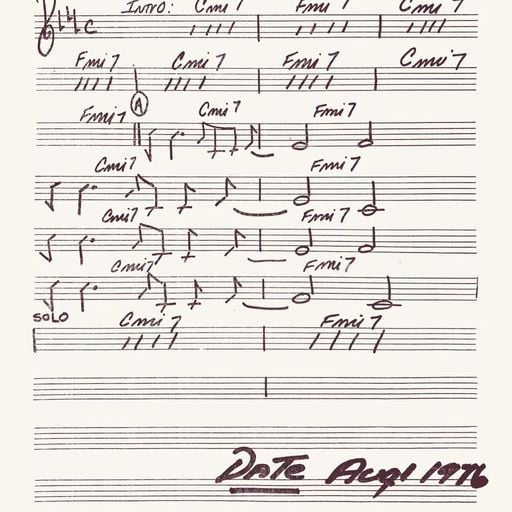 INTRO: Cmi7 Fmi7 Cmi7
Fmi7 Cmi7 Fmi7 Cmi7
Fmi7 A Cmi7 Fmi7
Cmi7 Fmi7
Cmi7 Fmi7
Cmi7 Fmi7
SOLO
Cmi7 Fmi7
DATE Aug 1 1976